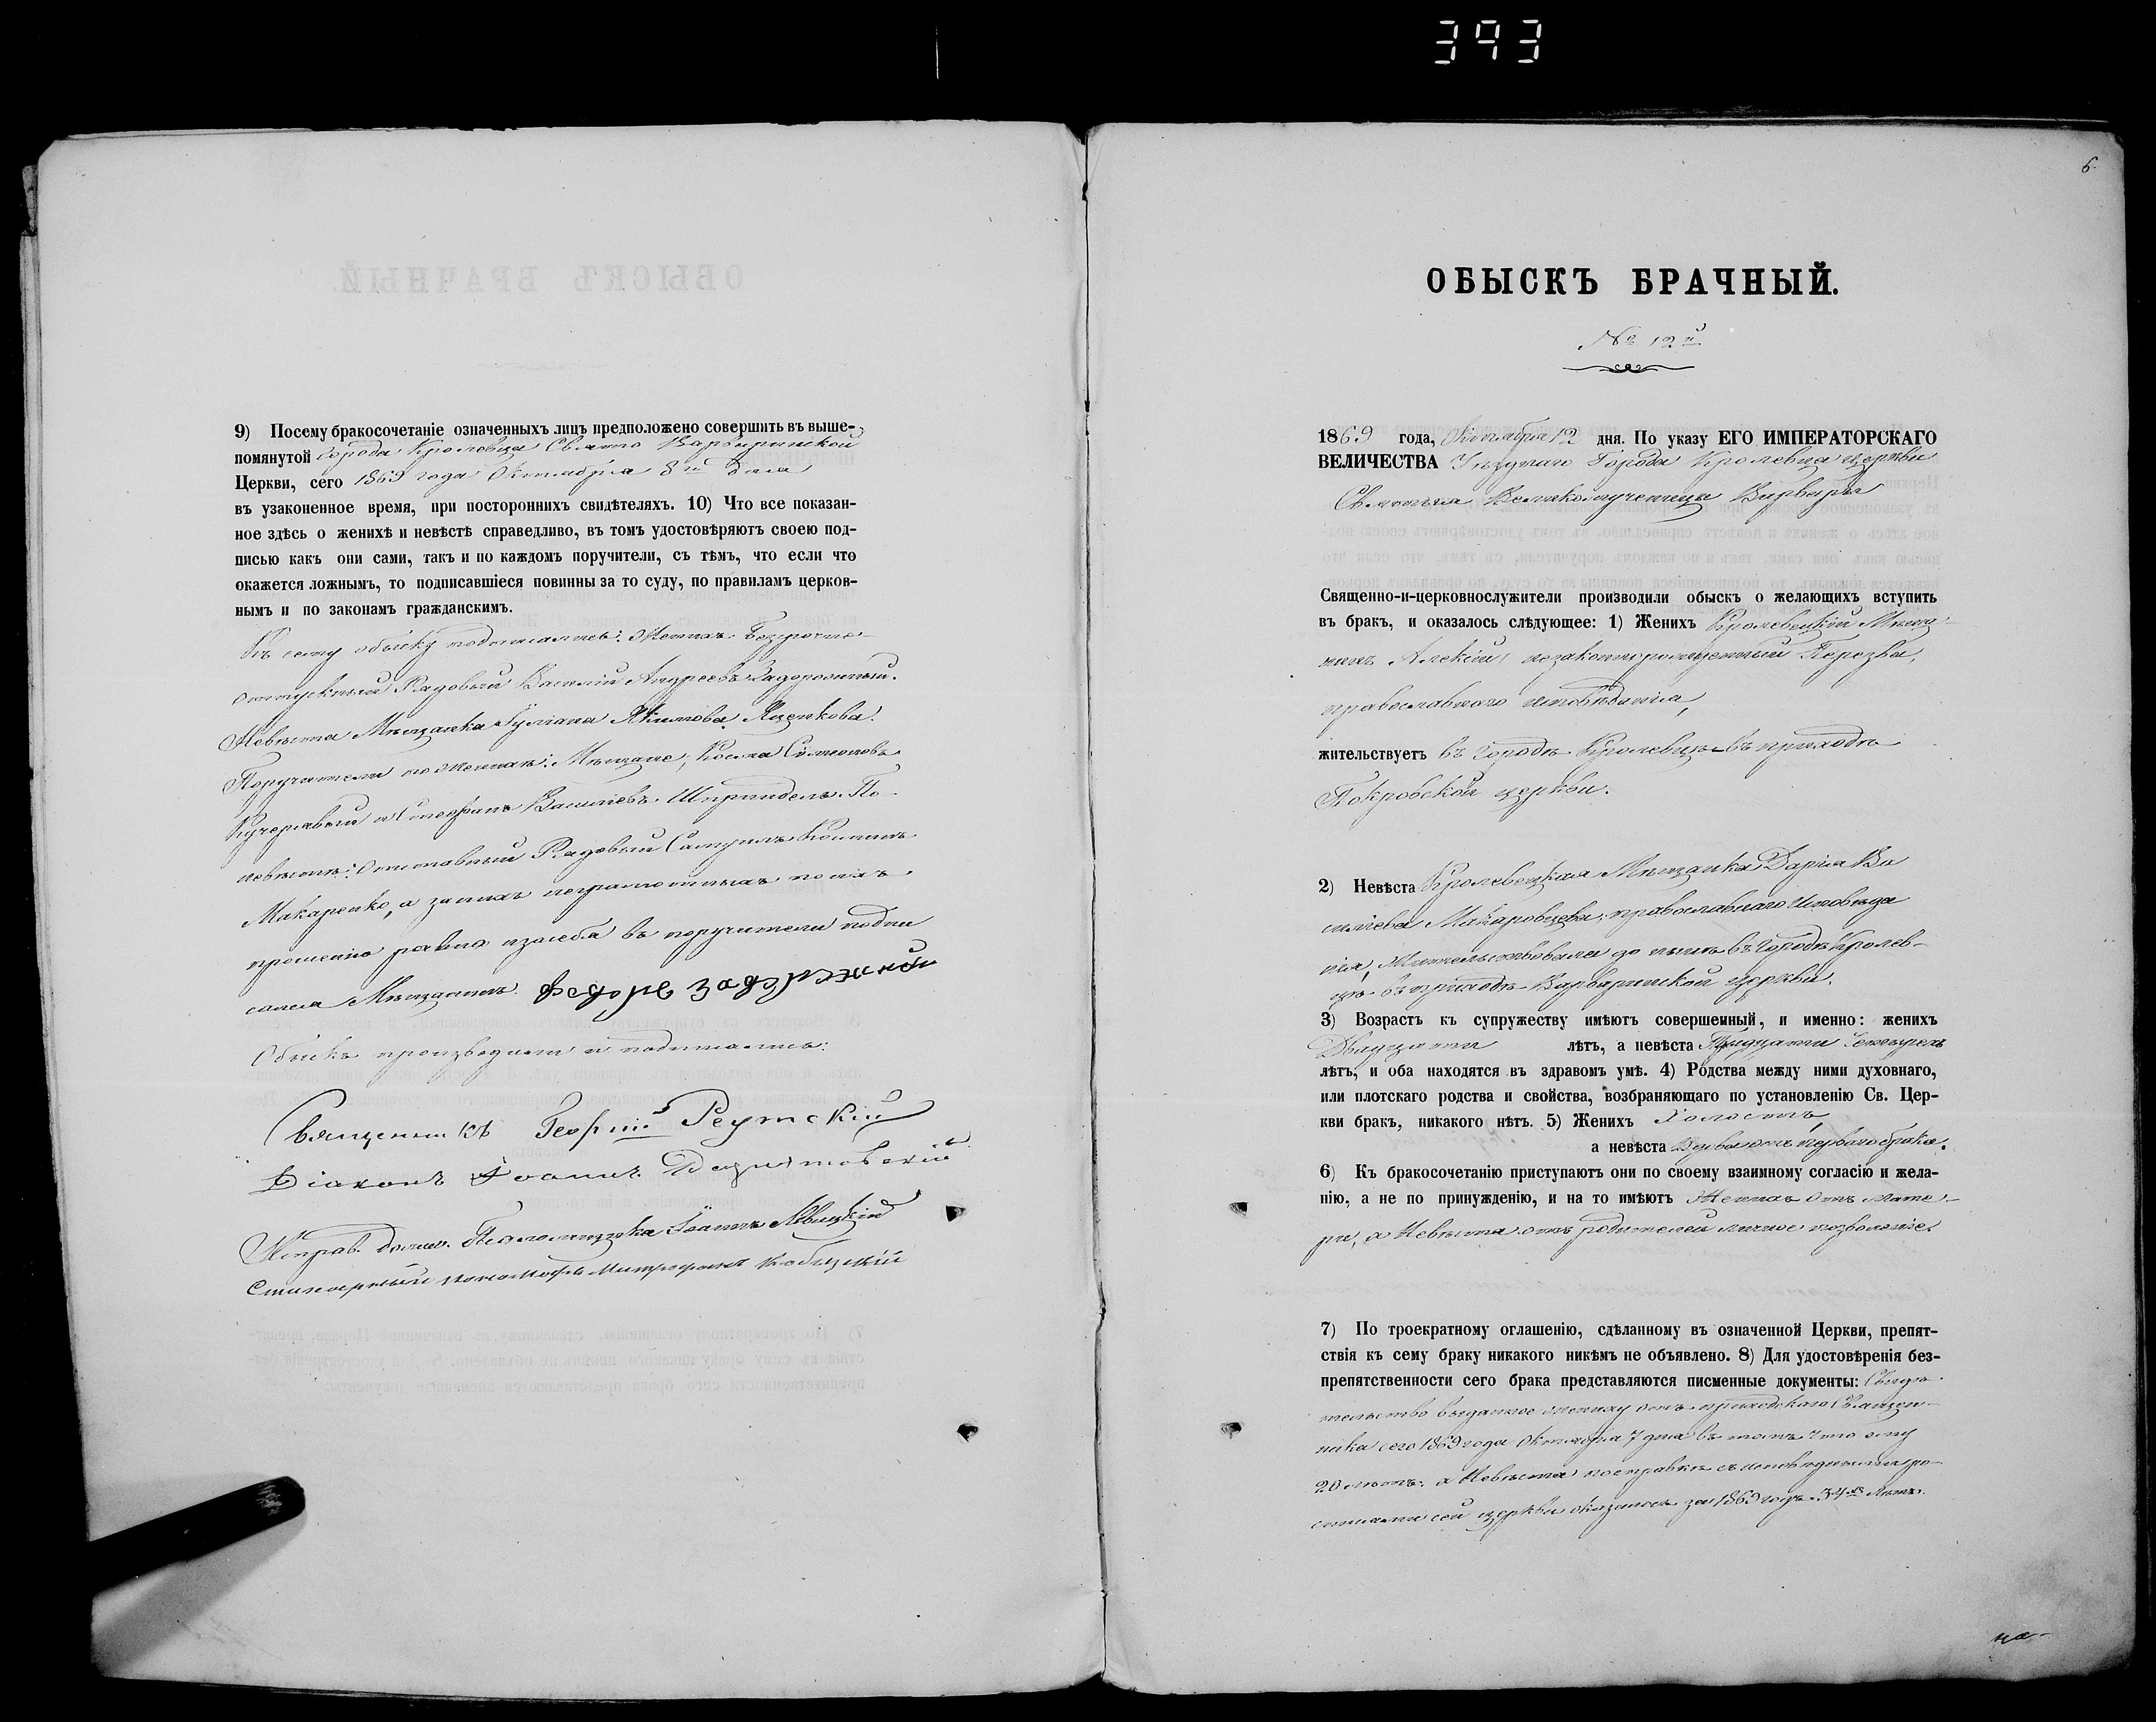 393
9) Посему бракосочетаніе означенныхъ лицъ предположено совершить въ выше-
помянутой города Кролевца Свято Варваринской
Церкви, сего 1869 года Октября 8го дня
въ узаконенное время, при постороннихъ свидѣтеляхъ. 10) Что все показан-
ное здѣсь о женихѣ и невѣстѣ справедливо, въ томъ удостовѣряютъ своею под-
писью какъ они сами, такъ и по каждомъ поручители, съ тѣмъ, что если что
окажется ложнымъ, то подписавшіеся повинны за то суду, по правиламъ церков-
нымъ и по законамъ гражданскимъ.
Къ сему обыску подписались: Женихъ Безсрочно-
отпускный Рядовый Василій Андреевъ Задорожный.
Невѣста Мѣщанка Іуліана Якимова Яценкова.
Поручители по женихѣ: Мѣщане, Косма Симеоновъ
Кучерявый и Стефанъ Васильевъ Шпрындель. По
невѣстѣ: Отставный Рядовый Самуилъ
Макаренко, а за нихъ неграмотныхъ по ихъ
прошенію равно и за себя въ поручители подпи
сался Мѣщанинъ Федоръ Задорожной
Обыскъ производили и подписались:
Священникъ Георгій Реутскій
Діаконъ Іоаннъ
Исправ. должн. Псаломщика Іоаннъ Левицкій
Пономарь Митрофанъ Кобицкій
6
ОБЫСКЪ БРАЧНЫЙ.
№ 12й
1869 года, Октября 12 дня. По указу ЕГО ИМПЕРАТОРСКАГО
ВЕЛИЧЕСТВА Уѣзднаго Города Кролевца церкви
Святыя Великомученицы Варвары
Священно-и-церковнослужители производили обыскъ о желающихъ вступить
въ бракъ, и оказалось слѣдующее: 1) Женихъ Кролевецкій Мѣща-
нинъ Алексій, незаконнорожденный Перезва,
православнаго исповѣданія,
жительствуетъ въ городѣ Кролевцѣ въ приходѣ
Покровской церкви.
2) Невѣста Кролевецкая Мѣщанка Дарія Ва
силіева Макаровцева, православнаго исповѣда
нія, жительствовала до нынѣ въ городѣ Кролев-
цѣ въ приходѣ Варваринской церкви.
3) Возрастъ къ супружеству имѣютъ совершенный, и именно: женихъ
Двадцати лѣтъ, а невѣста Тридцати Четырехъ
лѣтъ, и оба находятся въ здравомъ умѣ. 4) Родства между ними духовнаго,
или плотскаго родства и свойства, возбраняющаго по установленію Св. Цер-
кви бракъ, никакого нѣтъ. 5) Женихъ Холостъ,
а невѣста Вдова отъ перваго брака.
6) Къ бракосочетанію приступаютъ они по своему взаимному согласію и жела-
нію, а не по принужденію, и на то имѣютъ Женихъ отъ мате-
ри, а Невѣста отъ родителей личное позволеніе.
7) По троекратному оглашенію, сдѣланному въ означенной Церкви, препят-
ствія къ сему браку никакого никѣмъ не объявлено. 8) Для удостовѣренія без-
препятственности сего брака представляются писменные документы: Свидѣ-
тельство выданное жениху отъ приходскаго Священ-
ника сего 1869 года Октября 7 дня въ томъ что ему
20 лѣтъ: а Невѣста по справкѣ съ исповѣдными ро-
списями сей церкви оказалась за 1869 годъ 34 лѣтъ.
на-